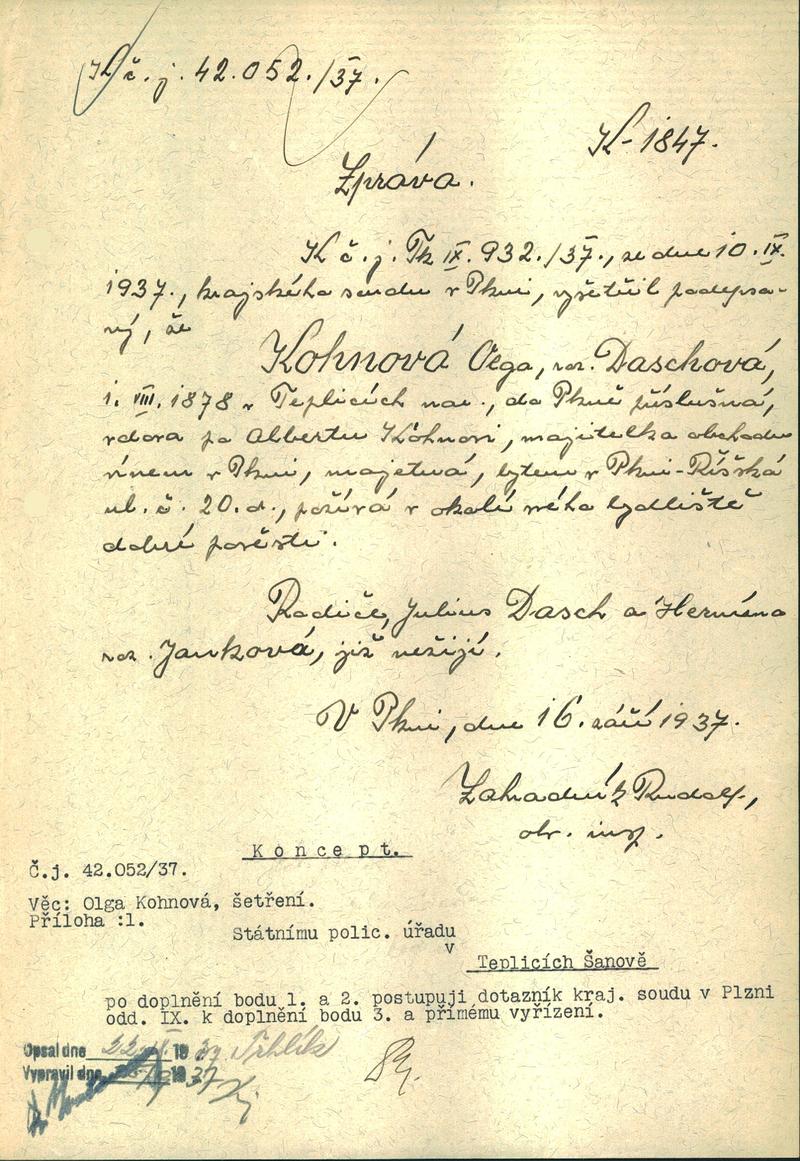 K č. j. 42.052./37.
K-1847.
Zpráva.
K č. j. Tk IX. 932./37., ze dne 10. IX.
1937., krajského soudu v Plzni, vyšetřil podepsa-
ný, že
Kohnová Olga, roz. Daschová,
1. VIII. 1878 v Teplicích nar., do Plzně příslušná,
vdova po Albertu Kohnovi, majitelka obchodu
vínem v Plzni, majetná, bytem v Plzni-Říšská
ul. č. 20. d., požívá v okolí svého bydliště
dobré pověsti.
Rodiče, Julius Dasch a Hermína
roz. Janková, již nežijí.
V Plzni, dne 16. září 1937.
Zahradník Rudolf,
obr. insp.
Koncept.
Č.j. 42.052/37.
Věc: Olga Kohnová, šetření.
Příloha :1.
Státnímu polic. úřadu
v
Teplicích Šanově
po doplnění bodu 1. a 2. postupuji dotazník kraj. soudu v Plzni
odd. IX. k doplnění bodu 3. a přímému vyřízení.
Opsal dne 22 19 37
Vypravil dne 19 37